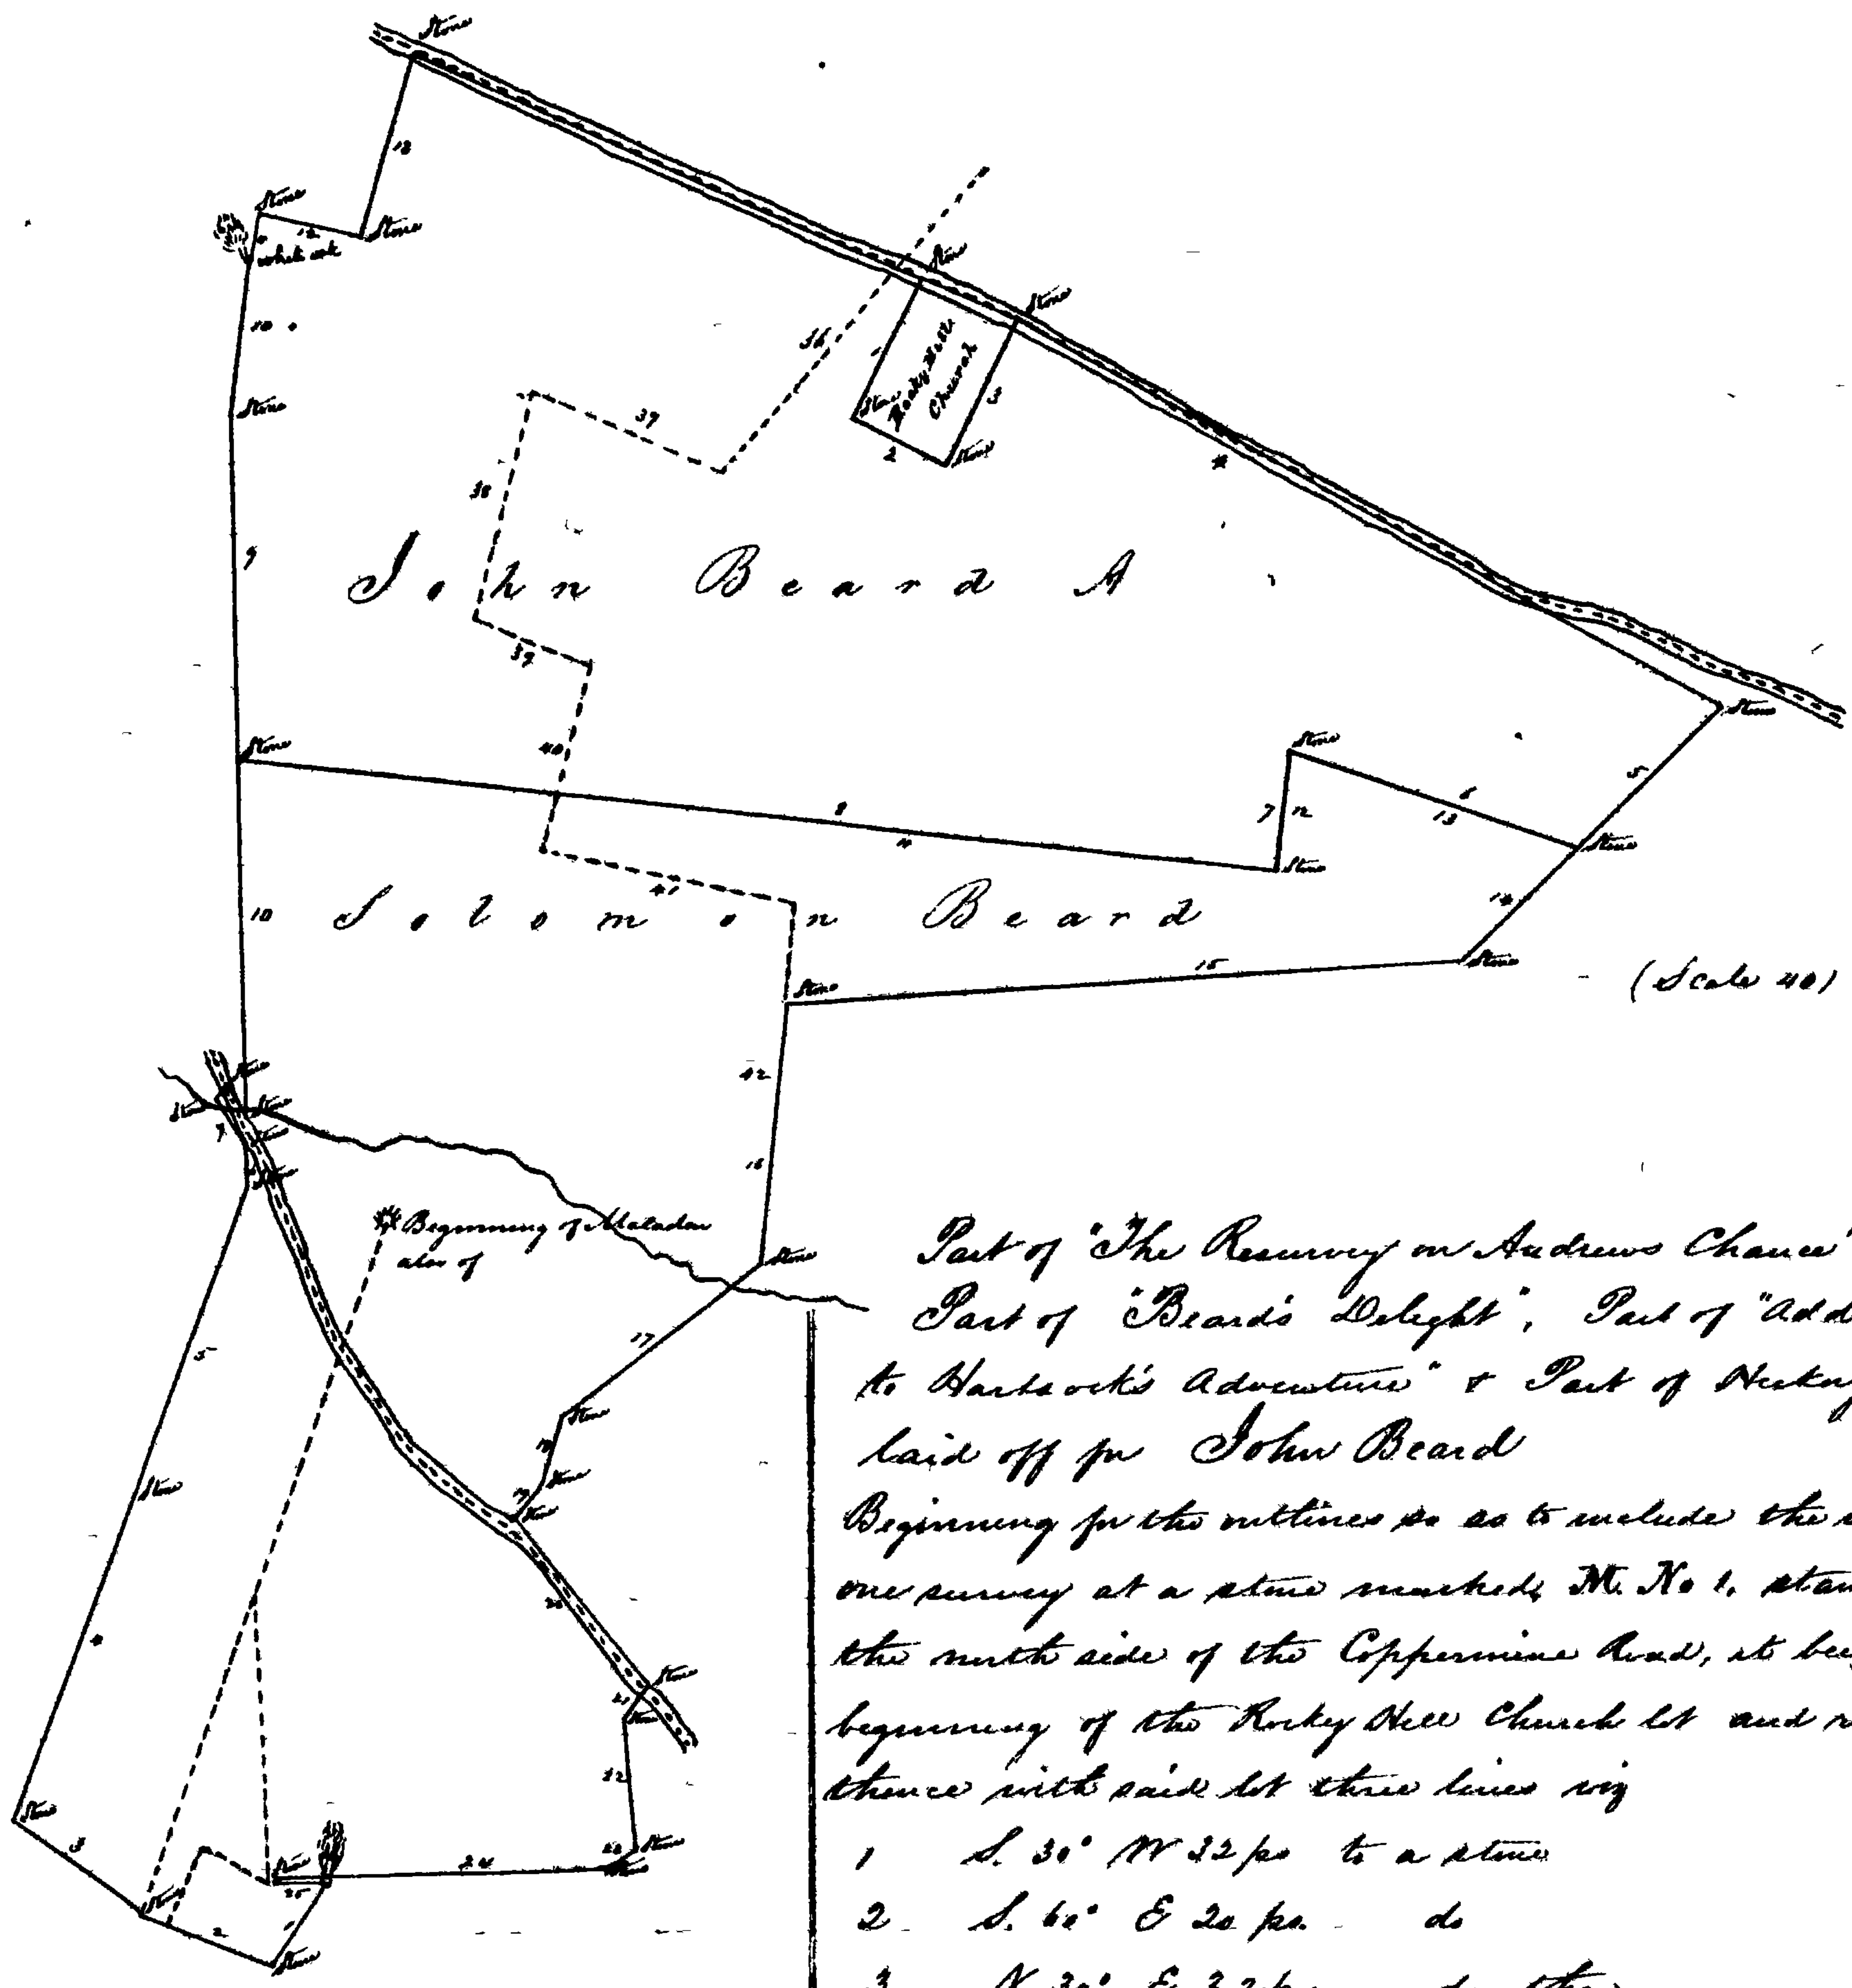 Stone
13
Stone
12
Stone
white oak
10
Stone
36
Stone
Stone
1
Rocky Hill
Church
Stone
3
2
Stone
37
38
4
9
John Beard A
39
Stone
40
Stone
Stone
5
6
13
7
12
8
11
Stone
Stone
14
41
10
Solomon Beard
15
Stone
(Scale 40)
Stone
42
16
Stone
Stone
Stone
Stone
Stone
7
Beginning of
also of
Stone
17
5
Stone
18
Stone
19
Stone
Stone
20
4
Stone
21
Stone
22
Stone
23
Stone
24
Stone
25
Stone
3
Stone
2
1
Stone
Part of "The Resurvey on Andrews Chance"
Part of "Beard's Delight", Part of "Add
to Harbock's Adventure" & Part of
laid off for John Beard
Beginning for the outlines so as to include the
one survey at a stone marked, M. No 1. stan
the north side of the Coppermine Road, it bei
beginning of the Rocky Hill Church lot and
thence with said lot three lines viz
1 S. 30° W 32 ps to a stone
2 S. 60° E 20 ps. do
3 N 30° E 32 ps do